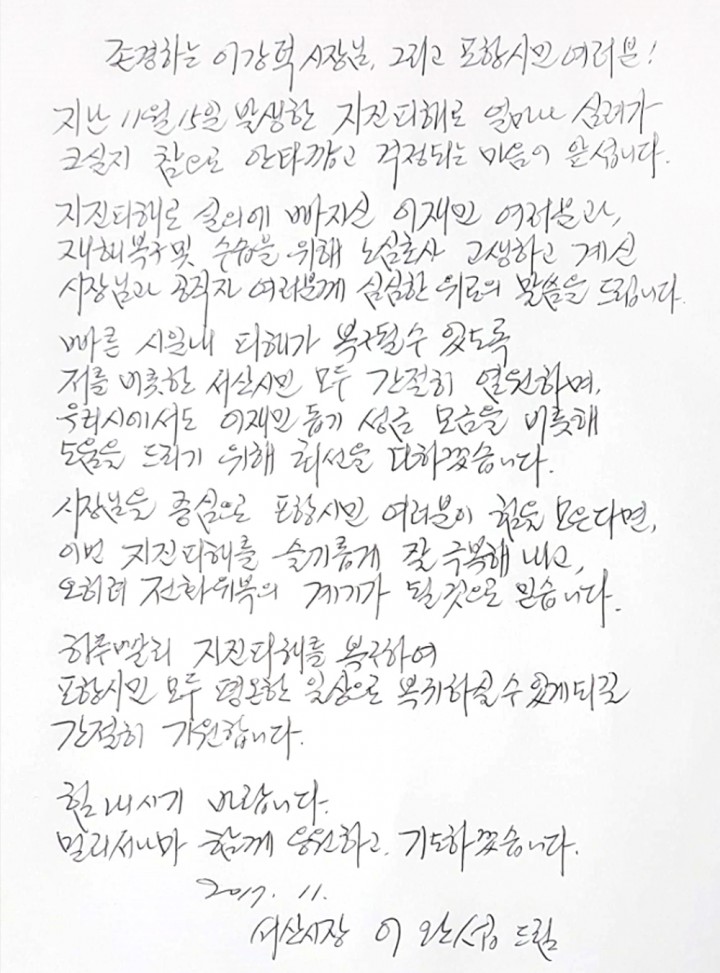 존경하는 이강덕 시장님, 그리고 포항시민 여러분!
지난 11월 15일 발생한 지진피해로 얼마나 심려가
크실지 참으로 안타깝고 걱정되는 마음이 앞섭니다.
지진피해로 실의에 빠지신 이재민 여러분과,
재해복구 및 수습을 위해 노심초사 고생하고 계신
시장님과 공직자 여러분께 심심한 위로의 말씀을 드립니다.
빠른 시일내 피해가 복구될 수 있도록
저를 비롯한 서산시민 모두 간절히 염원하며,
우리시에서도 이재민 돕기 성금 모금을 비롯해
도움을 드리기 위해 최선을 다하겠습니다.
시장님을 중심으로 포항시민 여러분이 힘을 모은다면,
이번 지진피해를 슬기롭게 잘 극복해 내고,
오히려 전화위복의 계기가 될 것으로 믿습니다.
하루빨리 지진피해를 복구하여
포항시민 모두 평온한 일상으로 복귀하실 수 있게 되길
간절히 기원합니다.
힘 내시기 바랍니다.
멀리서나마 함께 응원하고, 기도하겠습니다.
2017. 11.
서산시장 이 완 섭 드림